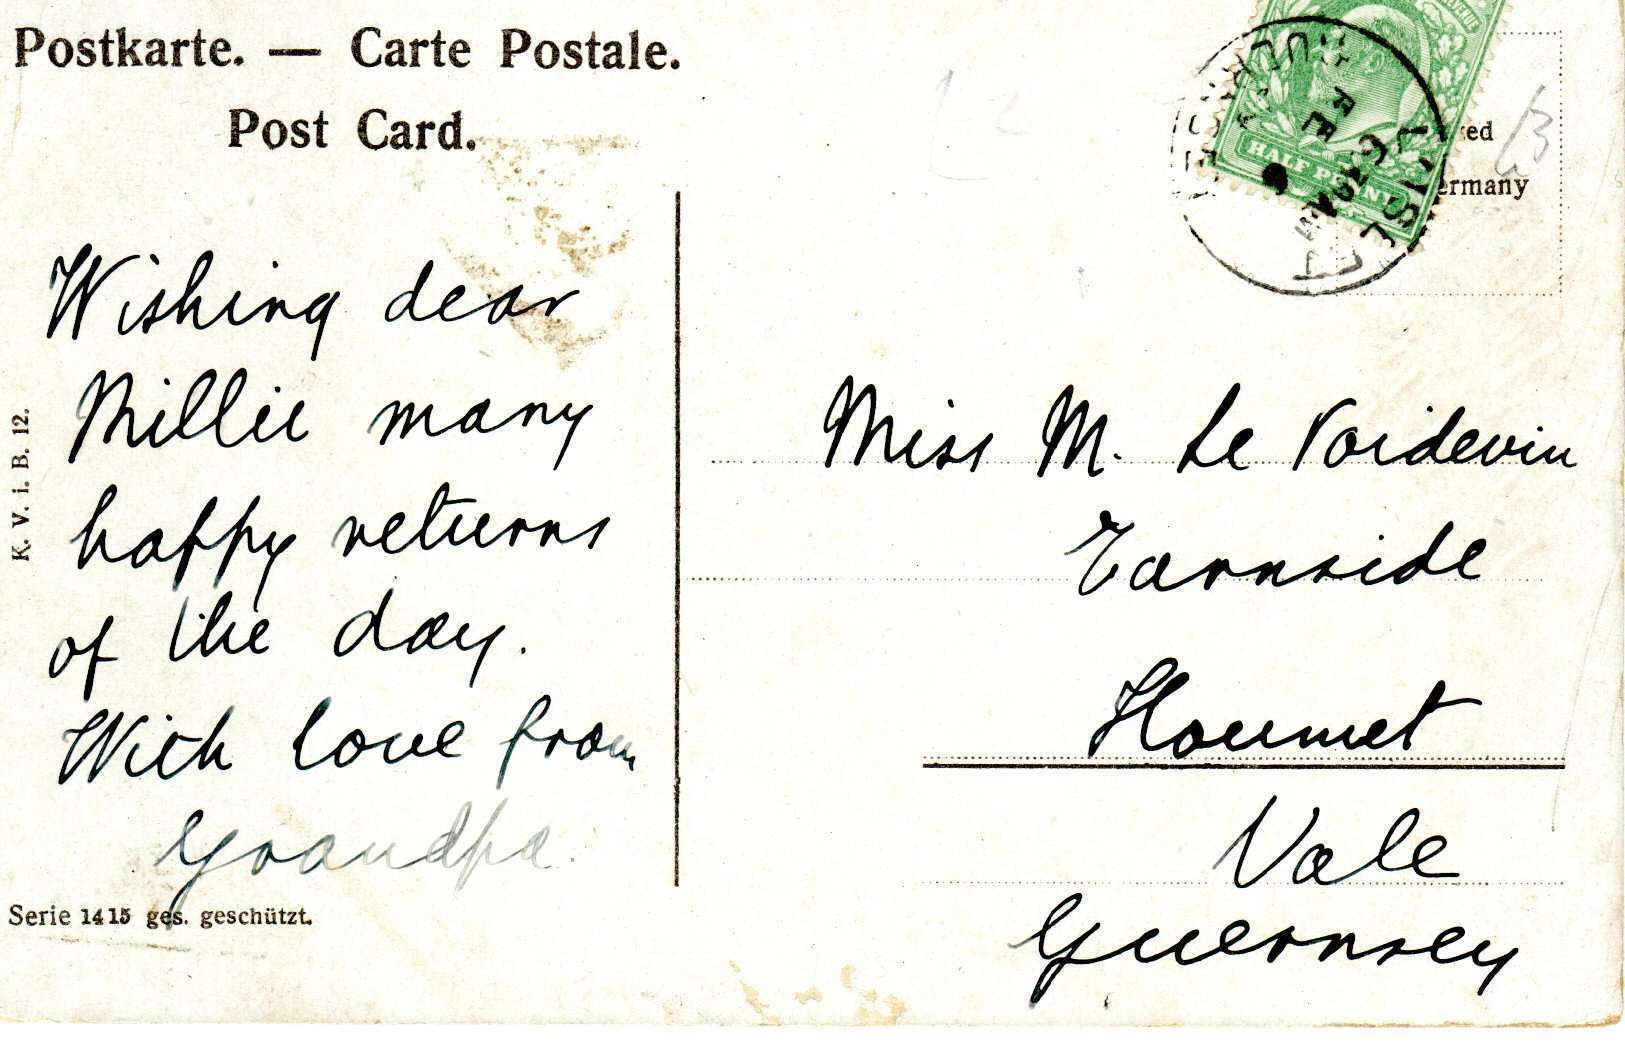 Postkarte. — Carte Postale.
Post Card.
HALF PENNY
ermany
Wishing dear
Millie many
happy returns
of the day.
With love from
Grandpa.
K. V. i. B. 12.
Serie 1415 ges. geschützt.
Miss M. Le Poidevin
Earnside
Houmet
Vale
Guernsey